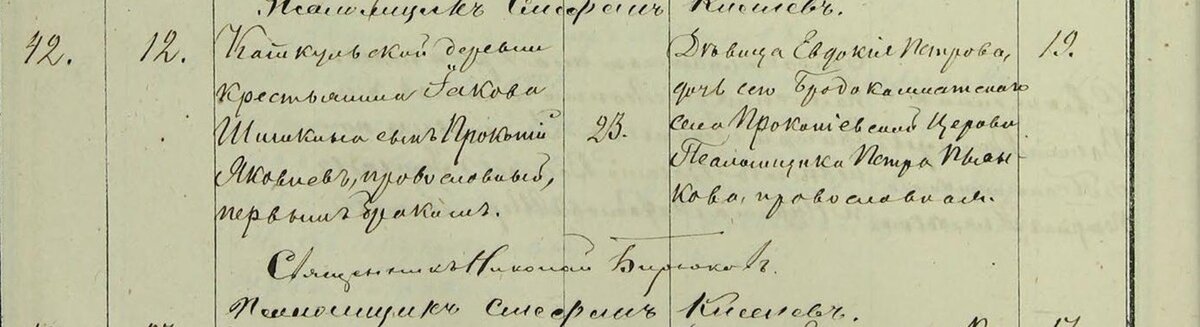 Псаломщикъ Стефанъ Киселевъ.
42. 12. Каткульской деревни
крестьянина Іакова
Шишкина сынъ Прокопій
Яковлевъ, провославный,
первымъ бракомъ.
23.
Дѣвица Евдокія Петрова,
дочь сего Бродокалматского
села Прокопіевской Церкви
Псаломщика Петра Пьян-
кова, провославная.
19.
Священникъ Николай Бирюковъ.
Псаломщикъ Стефанъ Киселевъ.